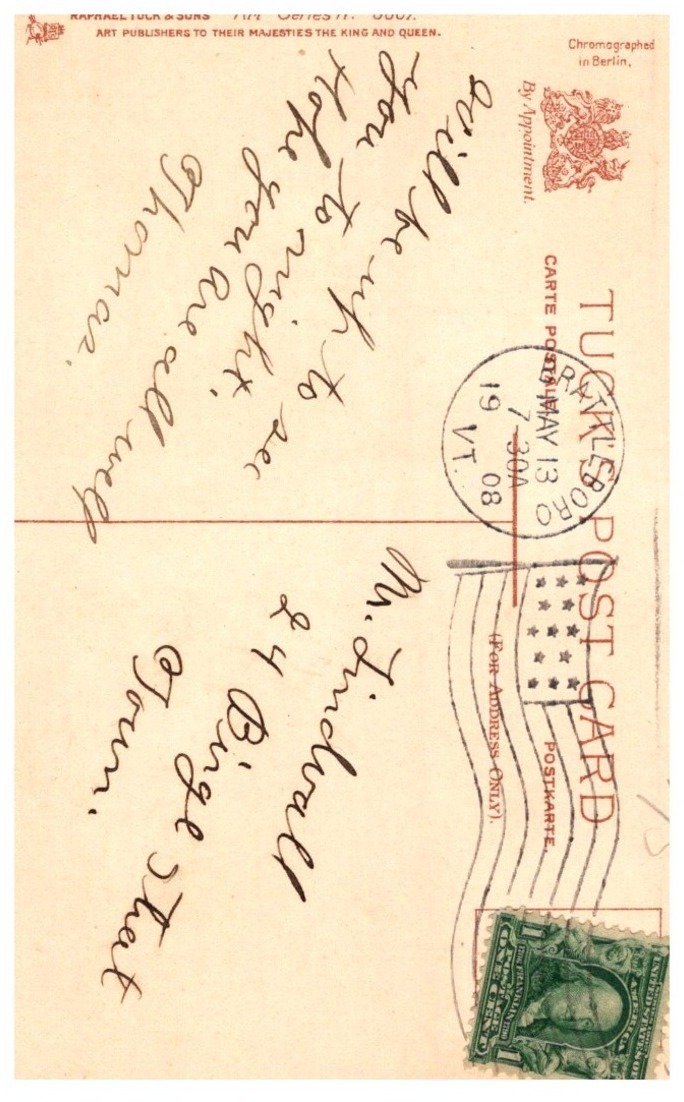 RAPHAEL TUCK & SONS "Art" Series
ART PUBLISHERS TO THEIR MAJESTIES THE KING AND QUEEN.
Chromographed
in Berlin.
By Appointment.
TUCK'S POST CARD
CARTE POSTALE
POSTKARTE.
(FOR ADDRESS ONLY).
BRATTLEBORO
MAY 13
7 30A
19 08
VT.
Will be up to see
you to night.
Hope you are all well
Thomas.
M. Lindvall
24 Birge Street
Town.
UNITED STATES OF AMERICA
FRANKLIN
POSTAGE
ONE CENT
1 1